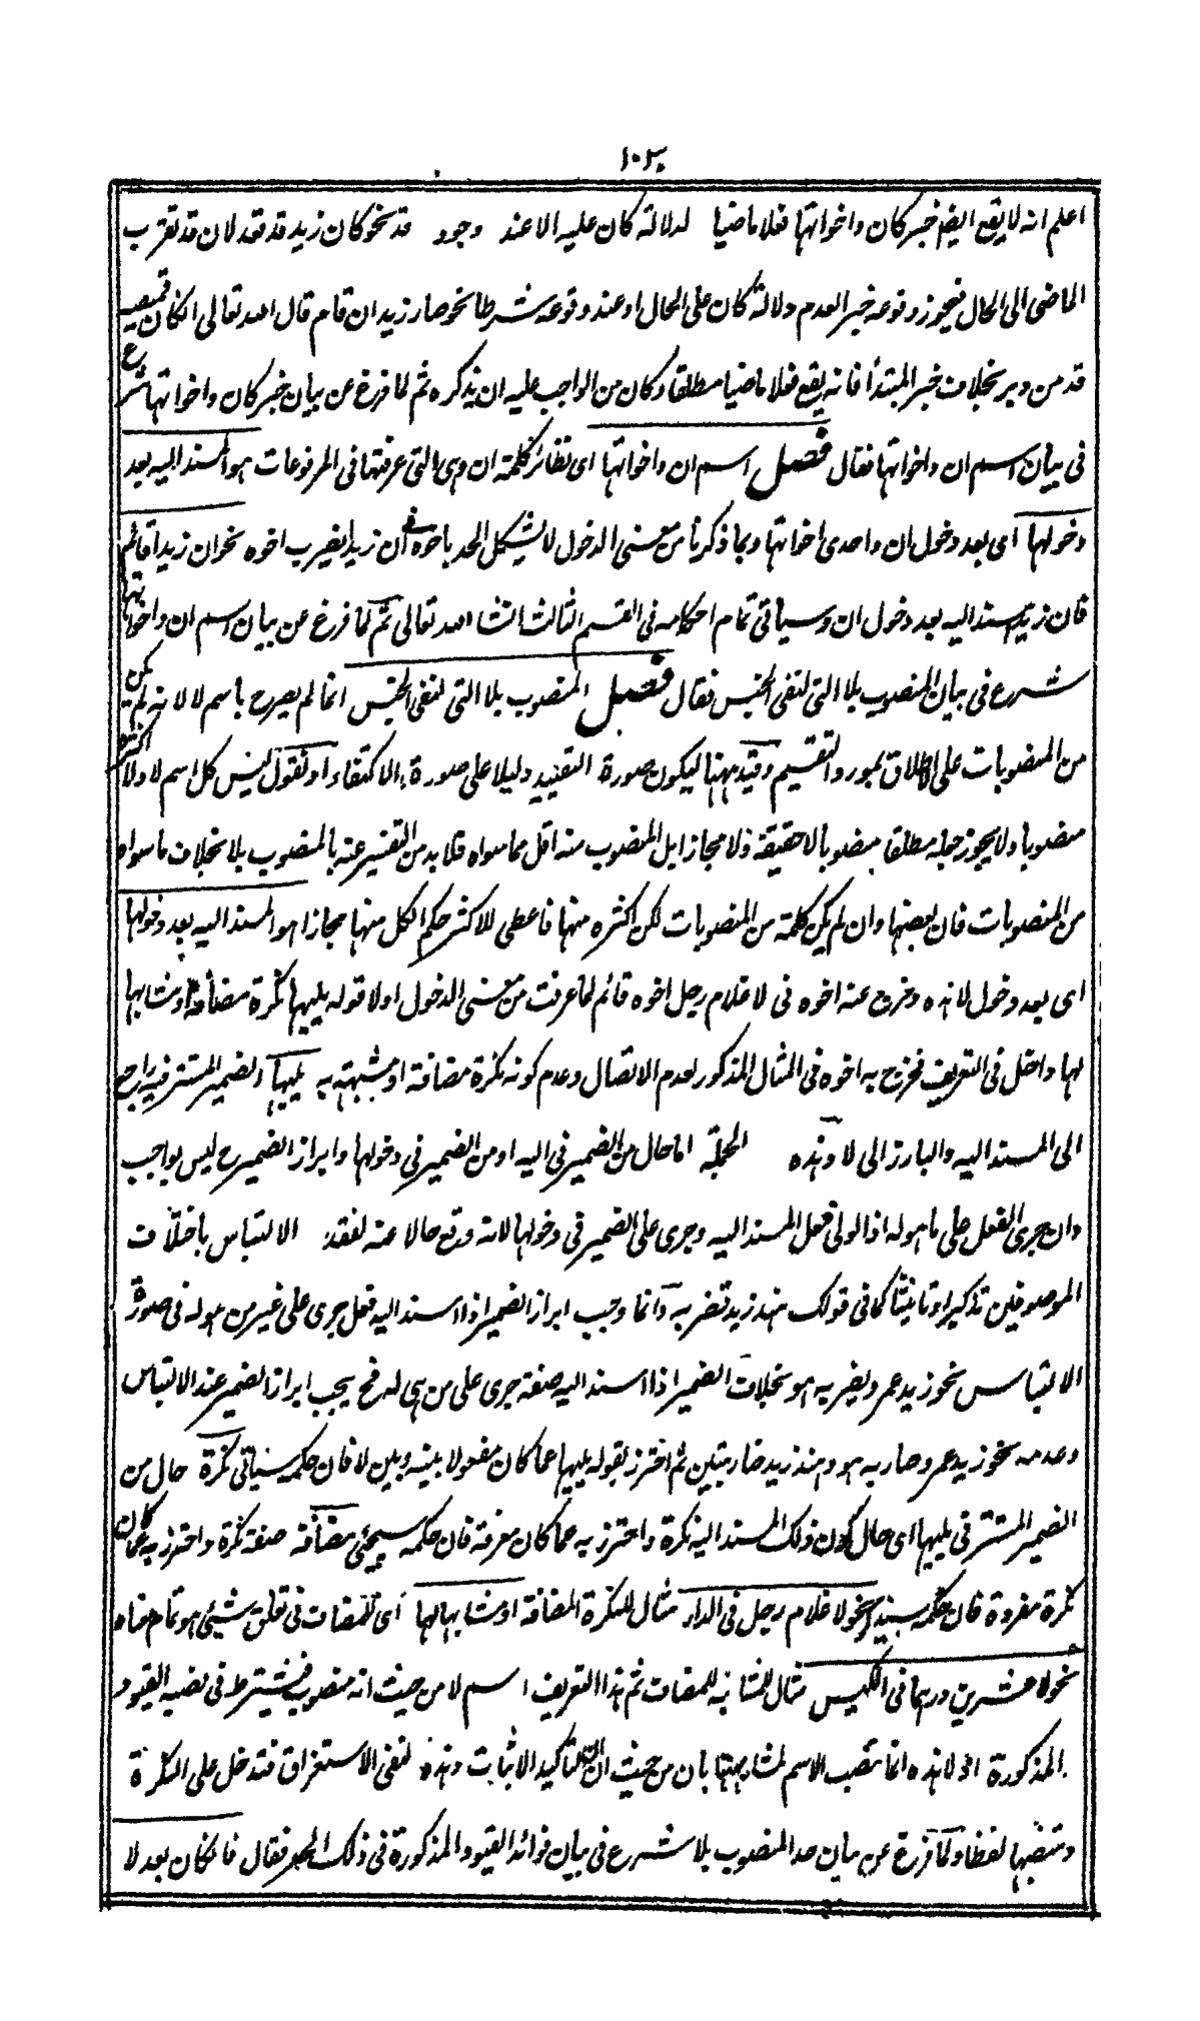 ١٠٣
اعلم انه لا يقع ايضا خبر كان واخواتها فعلا ماضيا لدلالة كان عليه الا عند وجود قد نحو كان زيد قد قعد لان قد تقرب
الماضى الى الحال فيجوز وقوعه خبرا لعدم دلالة كان على الحال او عند وقوعه شرطا نحو صار زيد ان قام قال الله تعالى ان كان قميصه
قد من دبر بخلاف خبر المبتدأ فانه يقع فعلا ماضيا مطلقا وكان من الواجب عليه ان يذكره ثم لما فرغ عن بيان خبر كان واخواتها شرع
فى بيان اسم ان واخواتها فقال فصل اسم ان واخواتها اى نظائر كلمة ان وهى التى عرفتها فى المرفوعات هو المسند اليه بعد
دخولها اى بعد دخول ان واحدى اخواتها وبما ذكرنا من معنى الدخول لا يشكل الحد باخوه فى ان زيدا يضرب اخوه نحو ان زيدا قائم
فان زيدا مسند اليه بعد دخول ان وسيأتى تمام احكامه فى القسم الثالث انشاء الله تعالى ثم لما فرغ عن بيان اسم ان واخواتها
شرع فى بيان المنصوب بلا التى لنفى الجنس فقال فصل المنصوب بلا التى لنفى الجنس انما لم يصرح باسم لا لانه لم يكن
من المنصوبات على الاطلاق بمورد التقسيم وقيد ههنا ليكون صورة التقييد دليلا على صورة الاكتفاء او نقول ليس كل اسم لا ولا اكثره
منصوبا ولا يجوز جعله مطلقا منصوبا لا حقيقة ولا مجازا بل المنصوب منه اقل مما سواه فلا بد من التفسير عنه بالمنصوب بلا بخلاف ما سواه
من المنصوبات فان بعضها وان لم يكن كلمة من المنصوبات لكن اكثره منها فاعطى للاكثر حكم الكل منها مجازا هو المسند اليه بعد دخولها
اى بعد دخول لا هذه وخرج عنه اخوه فى لا غلام رجل اخوه قائم لما عرفت من معنى الدخول او لا قوله يليها نكرة مضافة او مشابها
لها داخل فى التعريف فخرج به اخوه فى المثال المذكور لعدم الاتصال وعدم كونه نكرة مضافة او مشبهة به يليها والضمير المستتر فيه راجع
الى المسند اليه والبارز الى لا وهذه الجملة اما حال من الضمير فى اليه او من الضمير فى دخولها وابراز الضمير ح ليس بواجب
وان جرى الفعل على ما هو له اذ الولى فعل المسند اليه وجرى على الضمير فى دخولها لانه وقع حالا عنه لفقد الالتباس باختلاف
الموصوفين تذكيرا وتانيثا كما فى قولك هند زيد تضربه وانما وجب ابراز الضمير اذا اسند اليه فعل جرى على غير من هو له فى صورة
الالتباس نحو زيد عمرو يضربه هو بخلاف الضمير اذا اسند اليه صفة جرى على من هى له فح يجب ابراز الضمير عند الالتباس
وعدمه نحو زيد عمرو ضاربه هو وهند زيد ضاربته هى ثم احترز بقوله يليها عما كان مفصولا بينه وبين لا فان حكمه سياتى نكرة حال من
الضمير المستتر فى يليها اى حال كون ذلك المسند اليه نكرة واحترز به عما كان معرفة فان حكمه سيجئ مضافة صفة نكرة واحترز به عما كان
نكرة مفردة فان حكمه سيذكر نحو لا غلام رجل فى الدار مثال للنكرة المضافة او مشابها لها اى للمضاف فى تعلق شيئ هو تمام معناه
نحو لا عشرين درهما فى الكيس مثال للمشابه للمضاف ثم هذا التعريف اسم لا من حيث انه منصوب فيشترط فى نصبه القيود
المذكورة اذ لا هذه انما تنصب الاسم لمشابهتها بان من حيث ان ان لتأكيد الاثبات وهذه لنفى الاستغراق فتدخل على النكرة
وتنصبها لفظا ولما فرغ عن بيان حد المنصوب بلا شرع فى بيان فوائد القيود المذكورة فى ذلك الحد فقال فان كان بعد لا